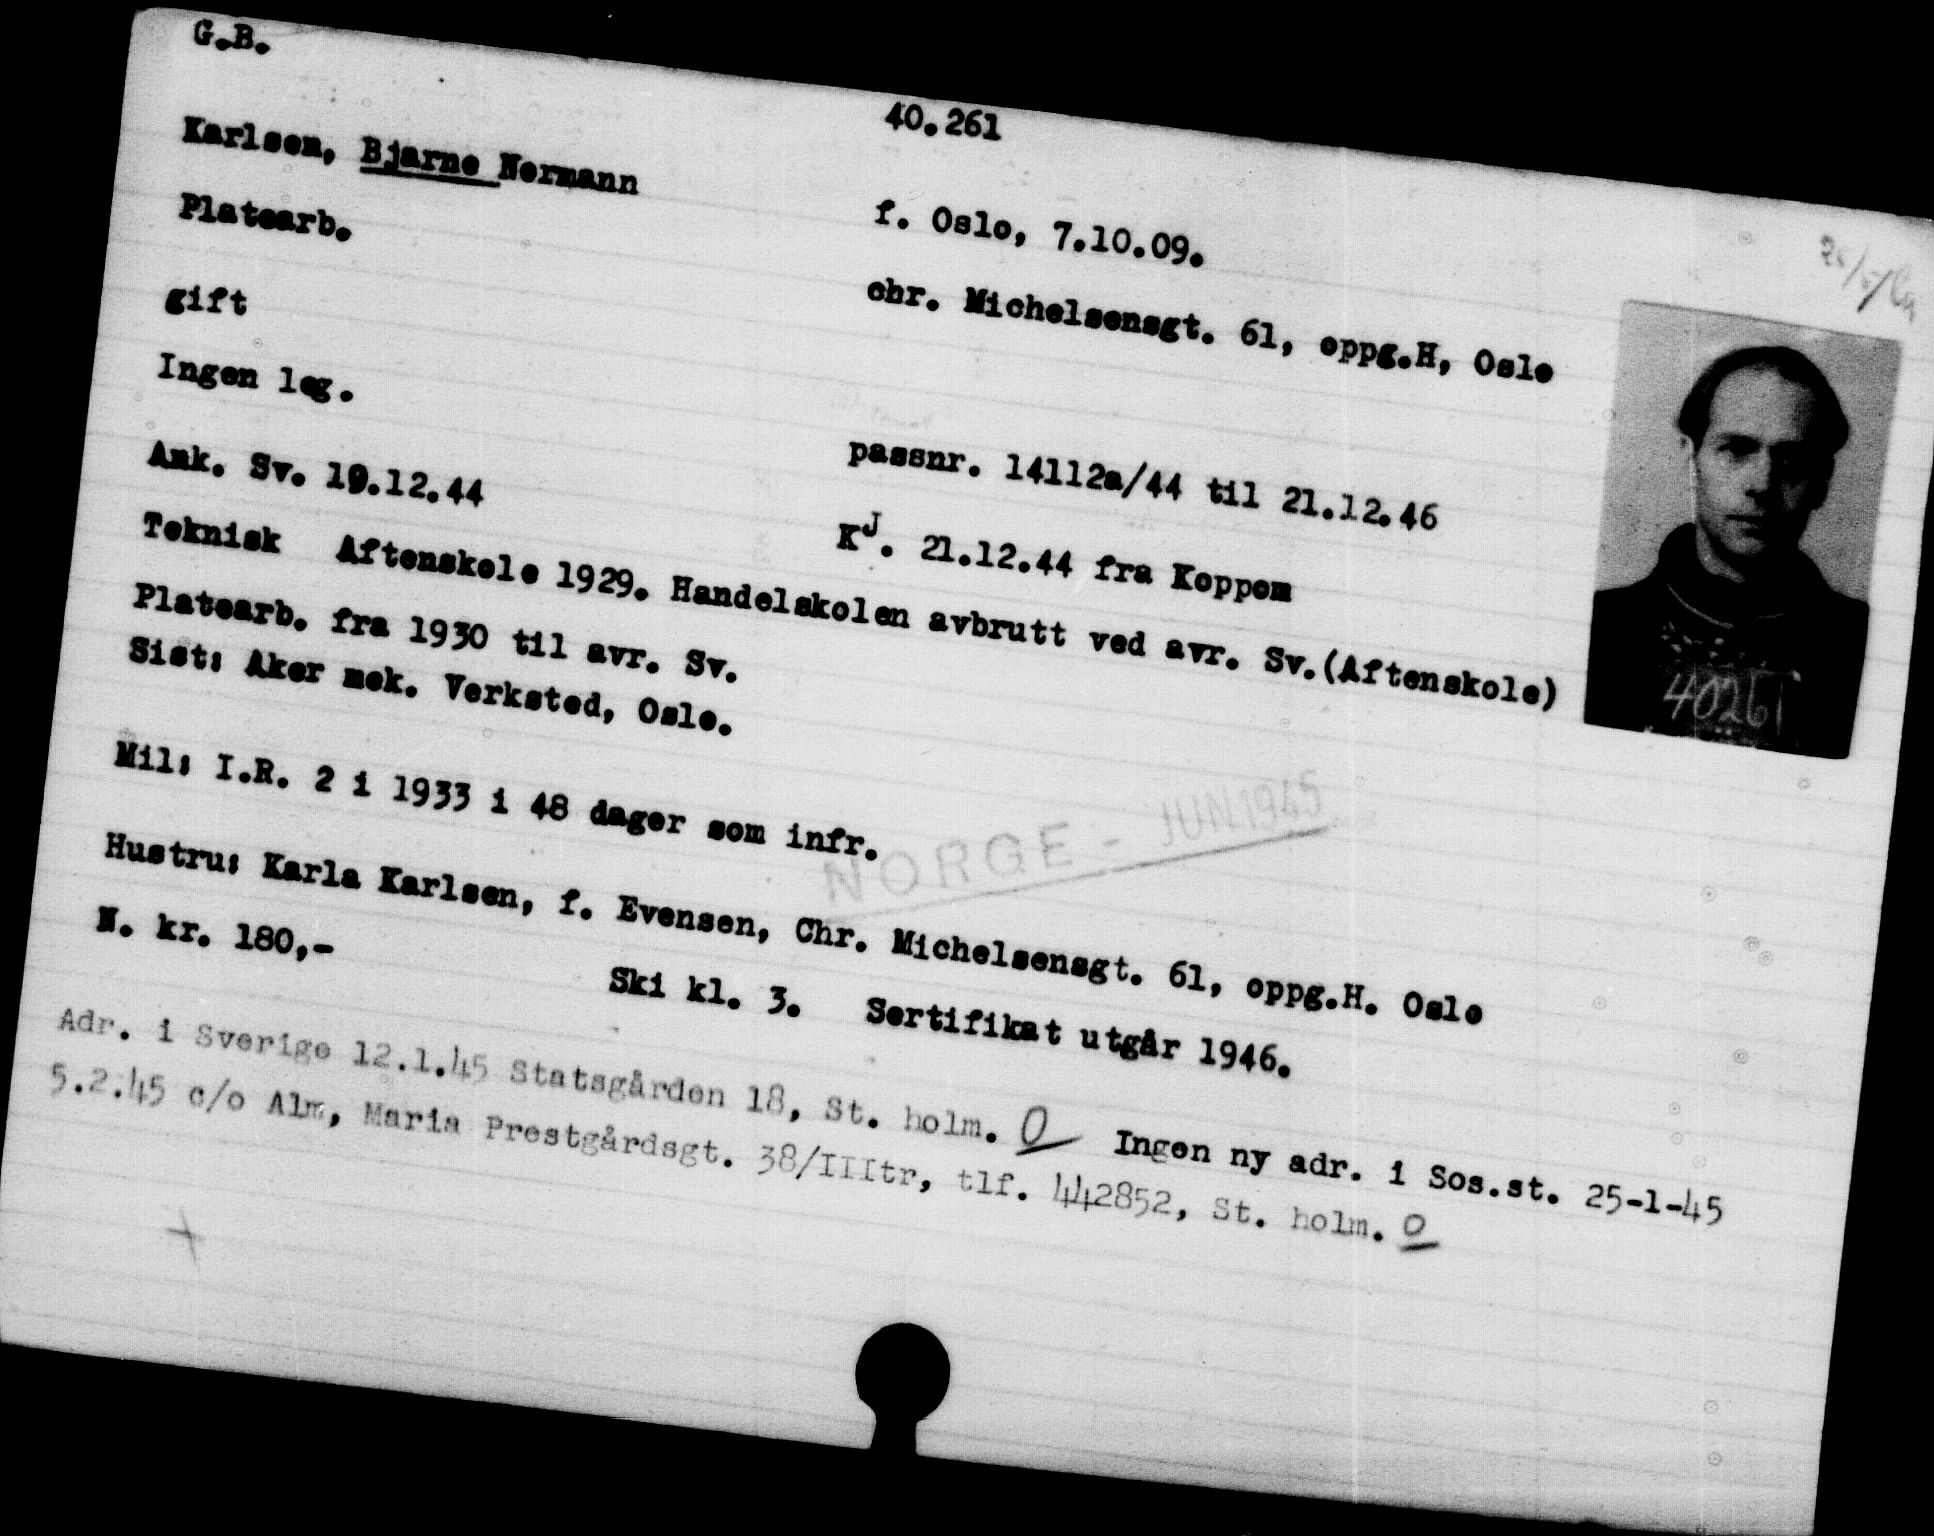 G.B.
40.261
Karlsen, Bjarne Normann
f. Oslo, 7.10.09.
Platearb.
chr. Michelsensgt. 61, oppg.H, Oslo
gift
Ingen leg.
passnr. 14112a/44 til 21.12.46
Ank. Sv. 19.12.44
KJ. 21.12.44 fra Koppom
Teknisk Aftenskole 1929. Handelskolen avbrutt ved avr. Sv.(Aftenskole)
Platearb. fra 1930 til avr. Sv.
Sist: Aker mek. Verksted, Oslo.
40261
Mil: I.R. 2 i 1933 i 48 dager som infr.
NORGE - JUN.1945
Hustru: Karla Karlsen, f. Evensen, Chr. Michelsensgt. 61, oppg.H. Oslo
N. kr. 180,-
Ski kl. 3. Sertifikat utgår 1946.
Adr. i Sverige 12.1.45 Statsgården 18, St. holm. O Ingen ny adr. i Sos.st. 25-1-45
5.2.45 c/o Alm, Maria Prestgårdsgt. 38/IIItr, tlf. 442852, St. holm. O